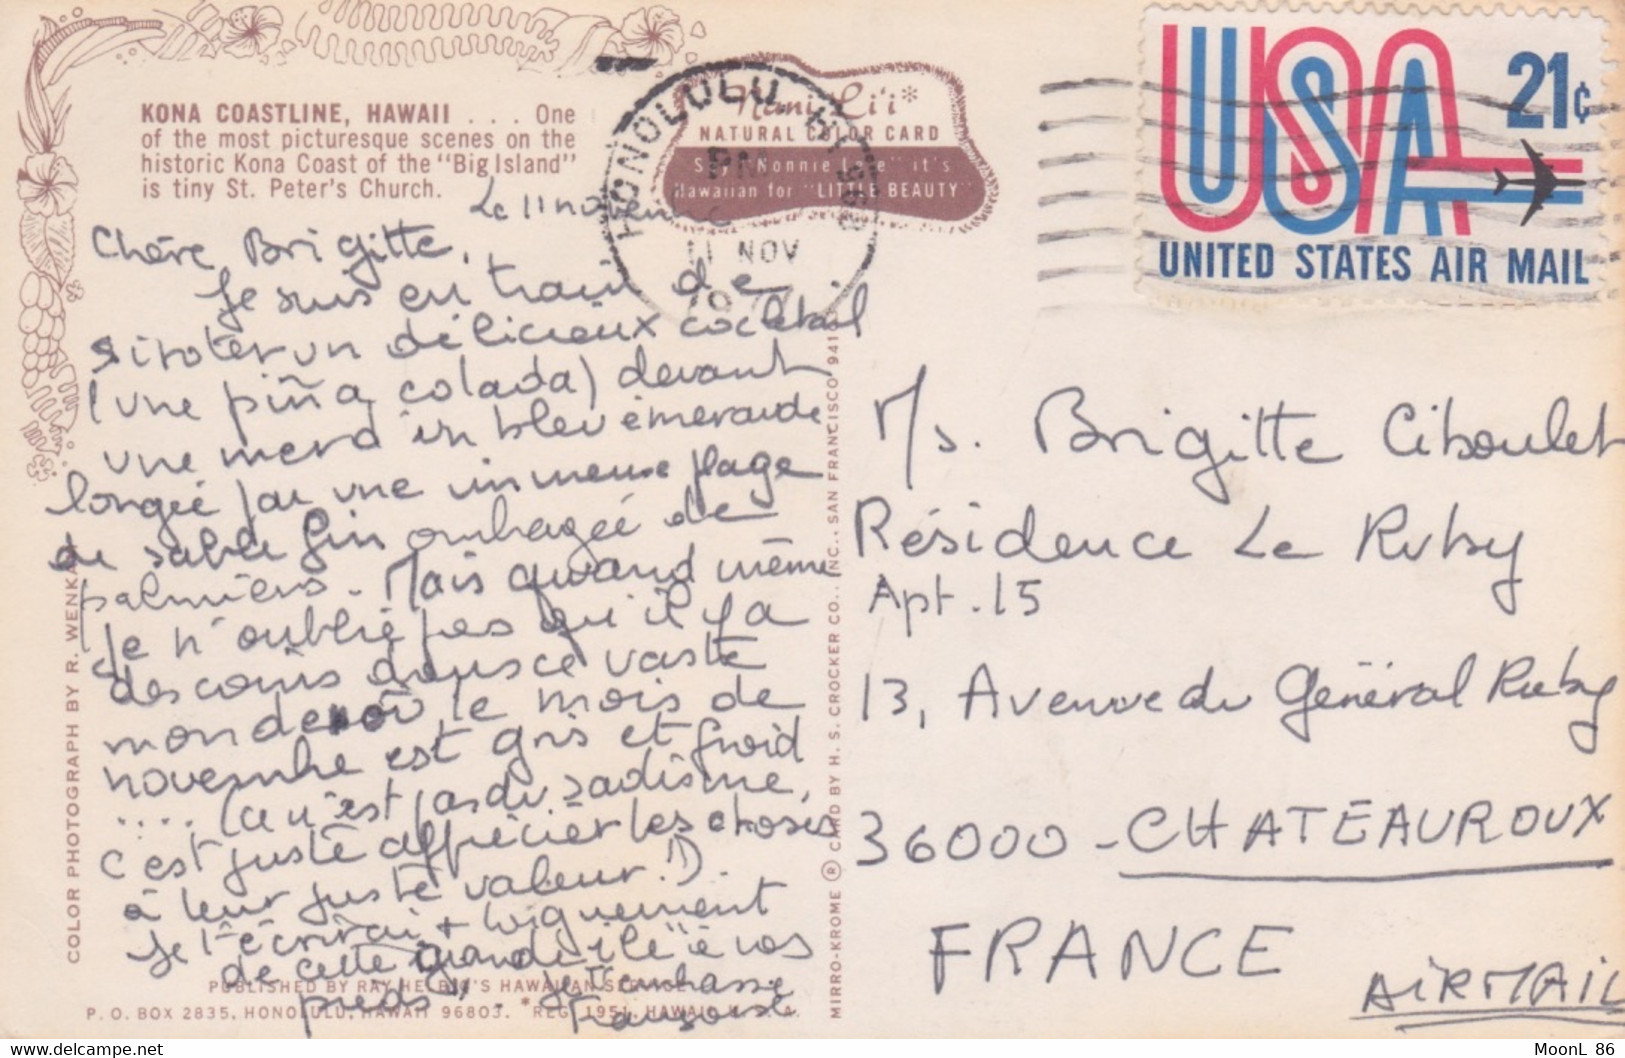 KONA COASTLINE, HAWAII . . . One
of the most picturesque scenes on the
historic Kona Coast of the "Big Island"
is tiny St. Peter's Church.
NATURAL COLOR CARD
Hawaiian for "LITTLE BEAUTY"
HONOLULU, HI
PM
11 NOV
USA 21¢
UNITED STATES AIR MAIL
Le 11 novembre
Chère Brigitte,
Je suis en train de
siroter un délicieux cocktail
(une piña colada) devant
une mer d'un bleu émeraude
longée par une immense plage
de sable fin ombragée de
palmiers. Mais quand même
je n'oublie pas qu'il y a
des coins dans ce vaste
monde où le mois de
novembre est gris et froid
.... (Ce n'est pas du sadisme,
c'est juste apprécier les choses
à leur juste valeur!).
Je t'écrirai + longuement
de cette grande île à vos
pieds. Je t'embrasse
Françoise
M/s. Brigitte Ciboulet
Résidence Le Ruby
Apt. 15
13, Avenue du Général Ruby
36000 - CHATEAUROUX
FRANCE
AIRMAIL
COLOR PHOTOGRAPH BY R. WENKAM
MIRRO-KROME ® CARD BY H. S. CROCKER CO., INC., SAN FRANCISCO 941
PUBLISHED BY RAY HELBIG'S HAWAIIAN SERVICE
P. O. BOX 2835, HONOLULU, HAWAII 96803. *REG. 1951, HAWAII, U. S. A.
MoonL 86